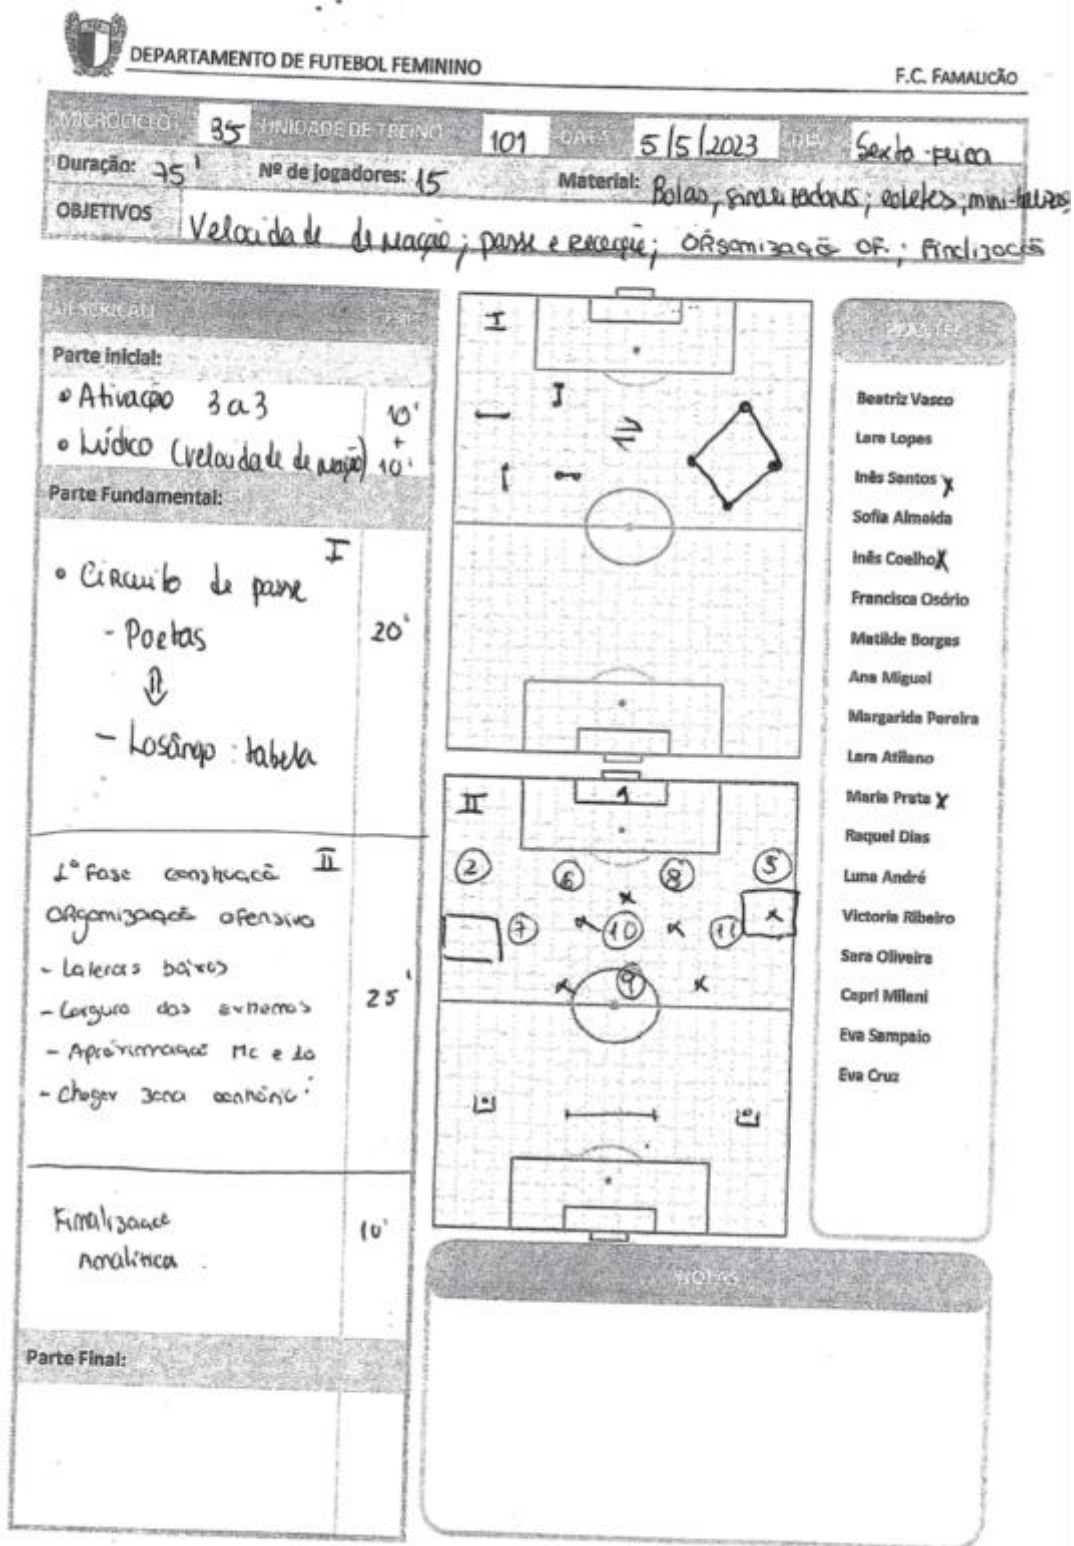 DEPARTAMENTO DE FUTEBOL FEMININO
F.C. FAMALICÃO
MICROCICLO 35 UNIDADE DE TREINO 101 DATA 5/5/2023 DIA Sexta-feira
Duração: 75' Nº de jogadores: 15 Material: Bolas, sinalizadores; coletes; mini-balizas
OBJETIVOS Velocidade de reação; passe e receção; ORganização OF.; Finalização
DESCRIÇÃO
Parte inicial:
• Ativação 3a3 10'
+
• Lúdico (velocidade de reação) 10'
Parte Fundamental:
I
• Circuito de passe
- Portas 20'
- Losângo : tabela
1ª Fase construção II
ORganização ofensiva
- Laterais baixos
- Largura dos extremos 25'
- Aproximação Mc e 10
- Chegar zona
Finalização 10'
Analítica
Parte Final:
I
II
1
2 6 8 5
7 10 11
9
Beatriz Vasco
Lara Lopes
Inês Santos X
Sofia Almeida
Inês Coelho X
Francisca Osório
Matilde Borges
Ana Miguel
Margarida Pereira
Lara Atilano
Maria Prata X
Raquel Dias
Luna André
Victoria Ribeiro
Sara Oliveira
Capri Mileni
Eva Sampaio
Eva Cruz
NOTAS